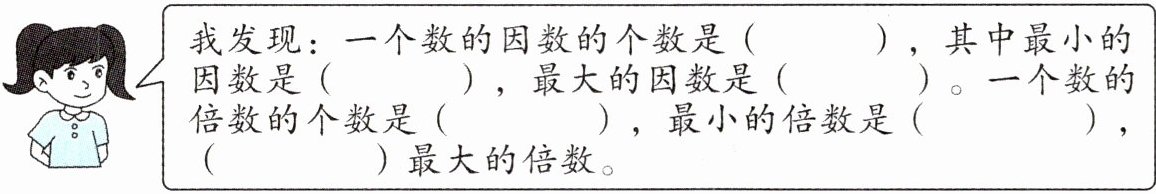 我发现：一个数的因数的个数是（　　　），其中最小的
因数是（　　　），最大的因数是（　　　）。一个数的
倍数的个数是（　　　），最小的倍数是（　　　），
（　　　）最大的倍数。